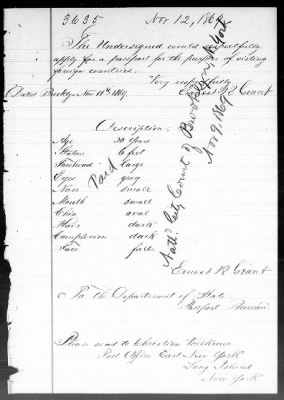 3635 Nov 12, 1869
The Undersigned would respectfully
apply for a passport for the purpose of visiting
foreign countries.
Very respectfully
Dates Brooklyn Nov 11th 1869. Ernest R Grant
Description.
Age 30 Years
Stature 6 feet
Forehead large
Eyes grey
Nose small
Mouth small
Chin oval
Hair dark
Complexion dark
Face full
Paid
City Court of Brooklyn N. York
Nov 9. 1869
Ernest R Grant
To the Department of State
Passport Bureau
Please send to Christian
Post Office East New York
Long Island
New York